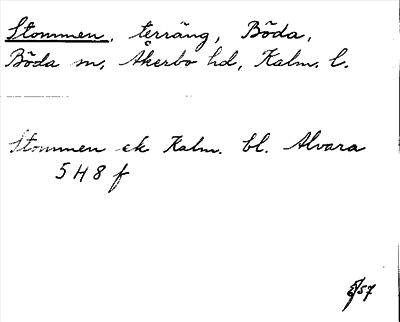 Stommen, terräng, Böda,
Böda sn, Åkerbo hd, Kalm. l.
Stommen ek Kalm. bl. Alvara
5 H 8 f
57